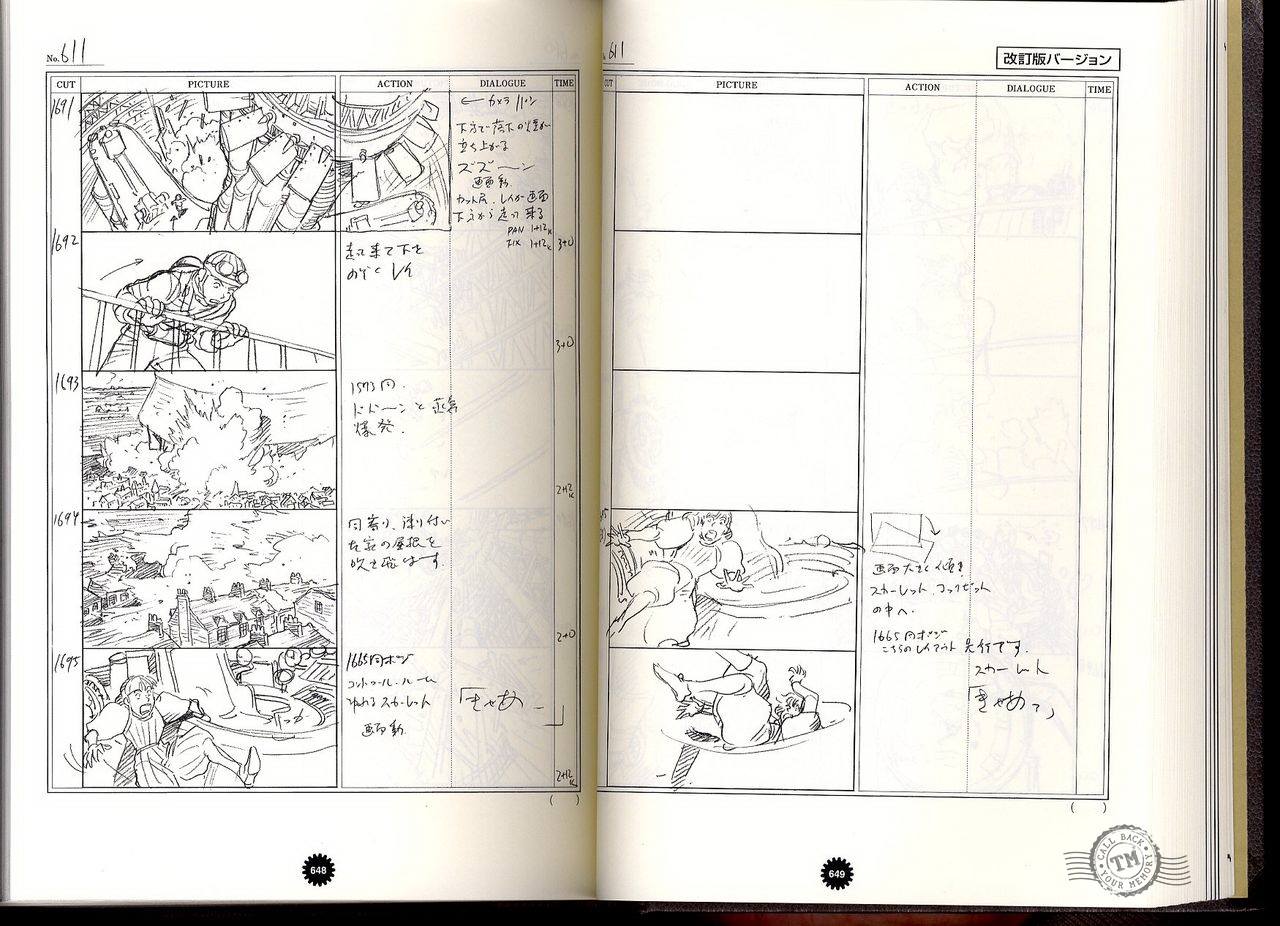 No. 611
CUT PICTURE ACTION DIALOGUE TIME
1691
← カメラ パン
下方で落下の煙が
立ち上がる
ズズーン
画面動
カット尻、レイが画面
下方から走り来る
PAN 1+12K
FIX 1+12K
3+0
1692
走って来て下を
のぞくレイ
3+0
1693
1593同.
ドドーンと蒸気
爆発.
2+12K
1694
同寄り、凍り付い
た家の屋根を
吹き飛ばす.
2+0
1695
1665同ポジ
コントロール・ルーム
ゆれるスカーレット
画面動.
「きゃあ
2+12K
( )
648
611
改訂版バージョン
CUT PICTURE ACTION DIALOGUE TIME
画面大きく傾き
スカーレット、コックピット
の中へ.
1665同ポジ
こちらのレイアウト先行です.
スカーレット
「きゃあっ」
( )
649
CALL BACK
TM
YOUR MEMORY